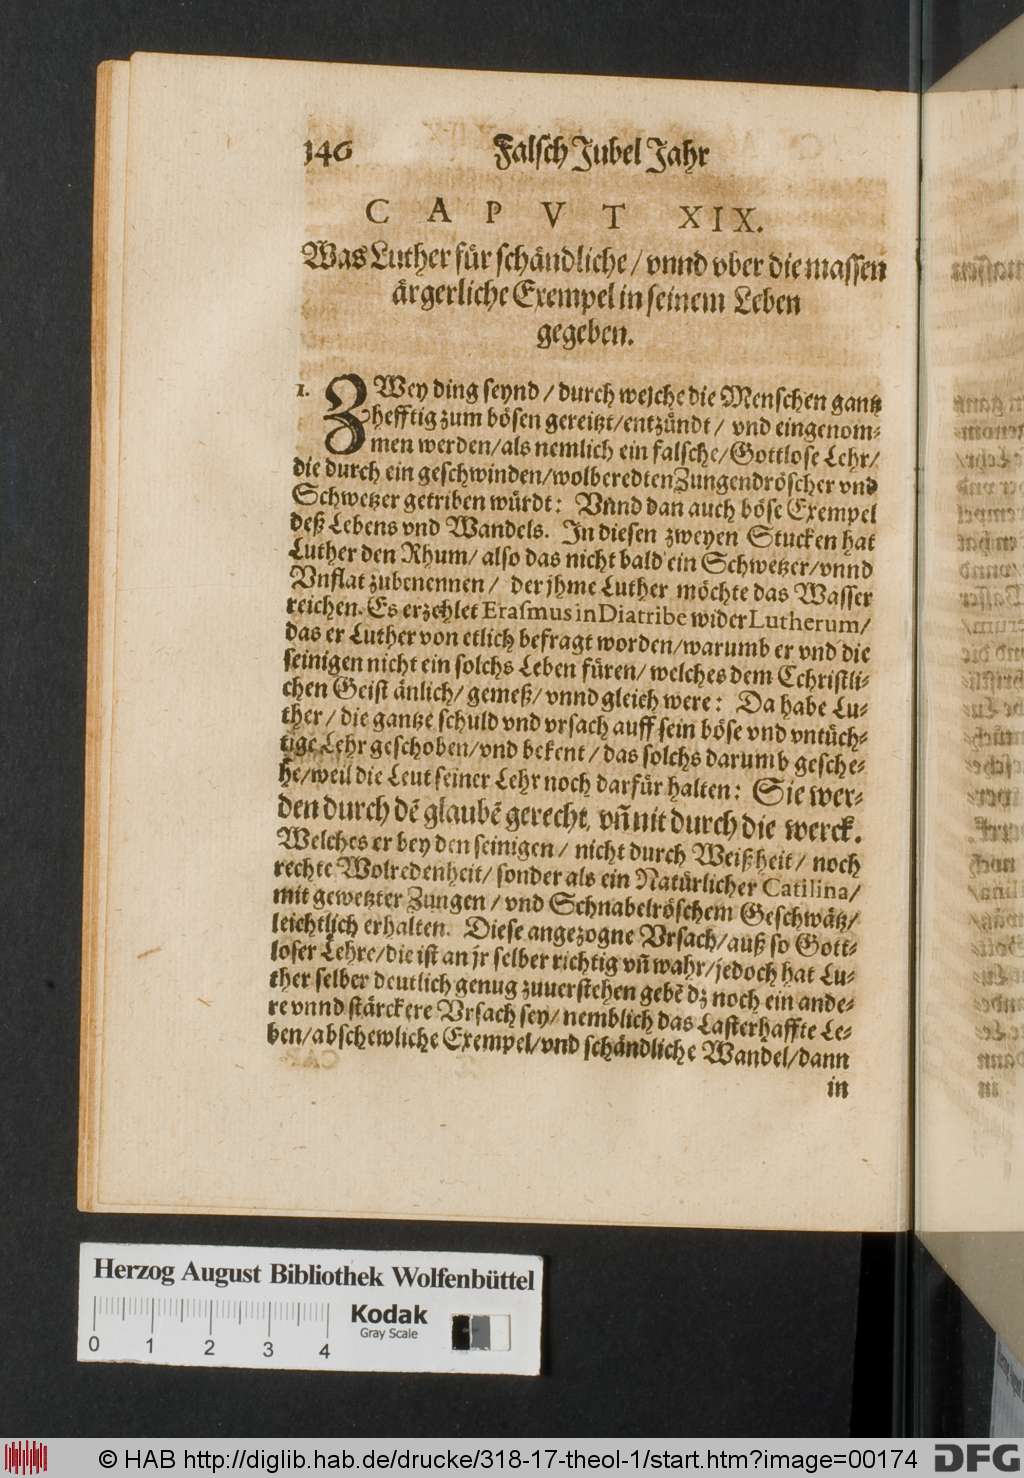 146 Falsch Jubel Jahr
CAPVT XIX.
Was Luther für schändliche / vnnd vber die massen
ärgerliche Exempel in seinem Leben
gegeben.
1. ZWey ding seynd / durch welche die Menschen gantz
hefftig zum bösen gereitzt / entzündt / vnd eingenom-
men werden / als nemlich ein falsche / Gottlose Lehr /
die durch ein geschwinden / wolberedten Zungendröscher vnd
Schwetzer getriben würdt: Vnnd dan auch böse Exempel
deß Lebens vnd Wandels. In diesen zweyen Stucken hat
Luther den Rhum / also das nicht bald ein Schwetzer / vnnd
Vnflat zubenennen / der jhme Luther möchte das Wasser
reichen. Es erzehlet Erasmus in Diatribe wider Lutherum /
das er Luther von etlich befragt worden / warumb er vnd die
seinigen nicht ein solchs Leben füren / welches dem Cchristli-
chen Geist änlich / gemeß / vnnd gleich were: Da habe Lu-
ther / die gantze schuld vnd vrsach auff sein böse vnd vntüch-
tige Lehr geschoben / vnd bekent / das solchs darumb gesche-
he / weil die Leut seiner Lehr noch darfür halten: Sie wer-
den durch dē glaubē gerecht, vn̄ nit durch die werck.
Welches er bey den seinigen / nicht durch Weißheit / noch
rechte Wolredenheit / sonder als ein Natürlicher Catilina /
mit gewetzter Zungen / vnd Schnabelröschem Geschwätz /
leichtlich erhalten. Diese angezogne Vrsach / auß so Gott-
loser Lehre / die ist an jr selber richtig vn̄ wahr / jedoch hat Lu-
ther selber deutlich genug zuuerstehen gebē dz noch ein ande-
re vnnd stärckere Vrsach sey / nemblich das Lasterhaffte Le-
ben / abschewliche Exempel / vnd schändliche Wandel / dann
in
Herzog August Bibliothek Wolfenbüttel
Kodak
Gray Scale
0 1 2 3 4
© HAB http://diglib.hab.de/drucke/318-17-theol-1/start.htm?image=00174
DFG